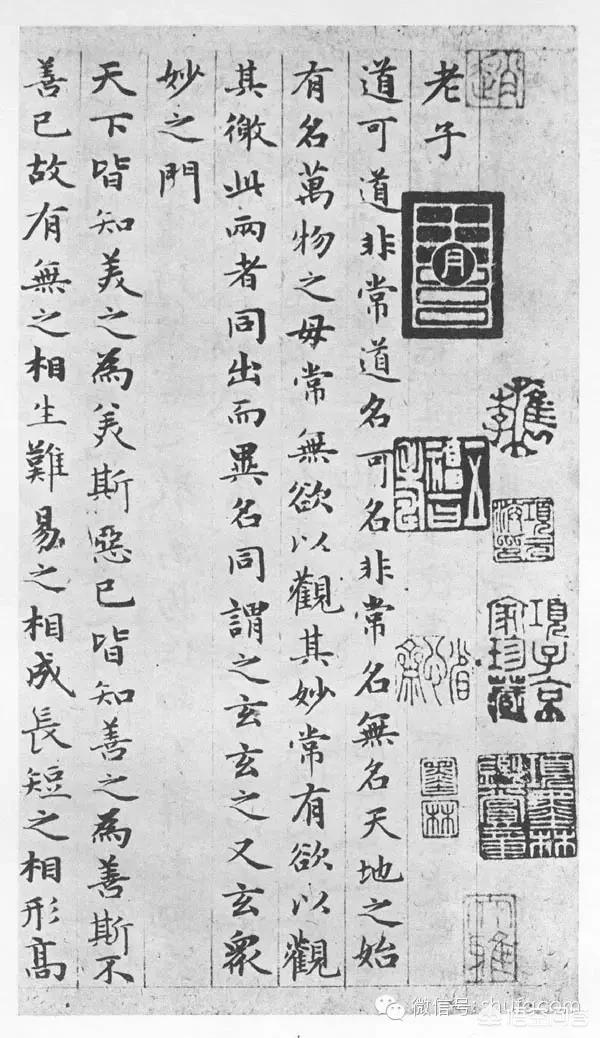 檇李
項元汴印
項子京家珍藏
項墨林鑑賞章
墨林
老子
道可道非常道名可名非常名無名天地之始
有名萬物之母常無欲以觀其妙常有欲以觀
其徼此兩者同出而異名同謂之玄玄之又玄眾
妙之門
天下皆知美之為美斯惡已皆知善之為善斯不
善已故有無之相生難易之相成長短之相形高
微信号: shufacom